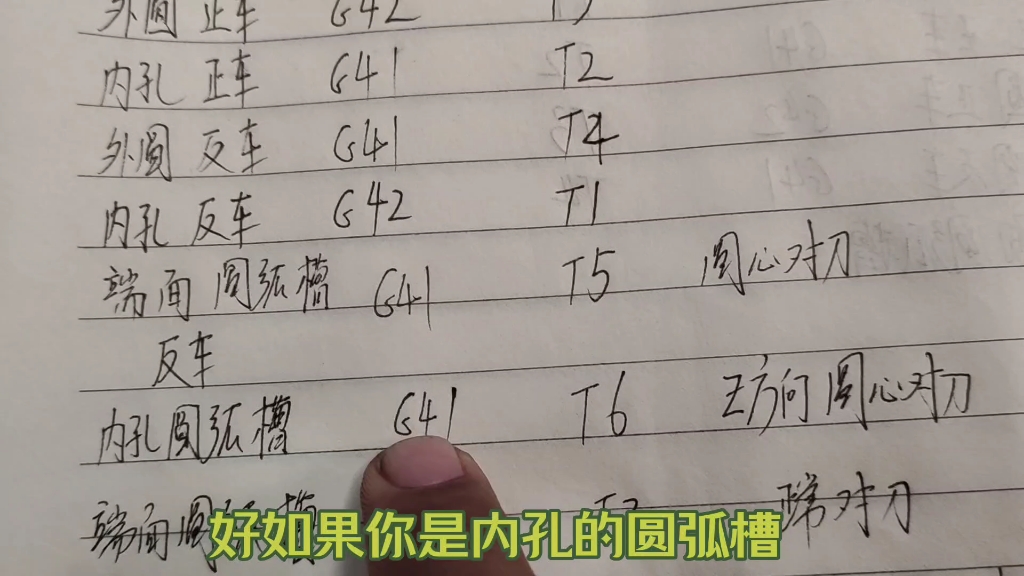 外圆 正车 G42
内孔 正车 G41 T2
外圆 反车 G41 T4
内孔 反车 G42 T1
端面 圆弧槽 G41 T5 圆心对刀
反车
内孔圆弧槽 G41 T6 Z方向圆心对刀
端面圆弧槽 对刀
好如果你是内孔的圆弧槽